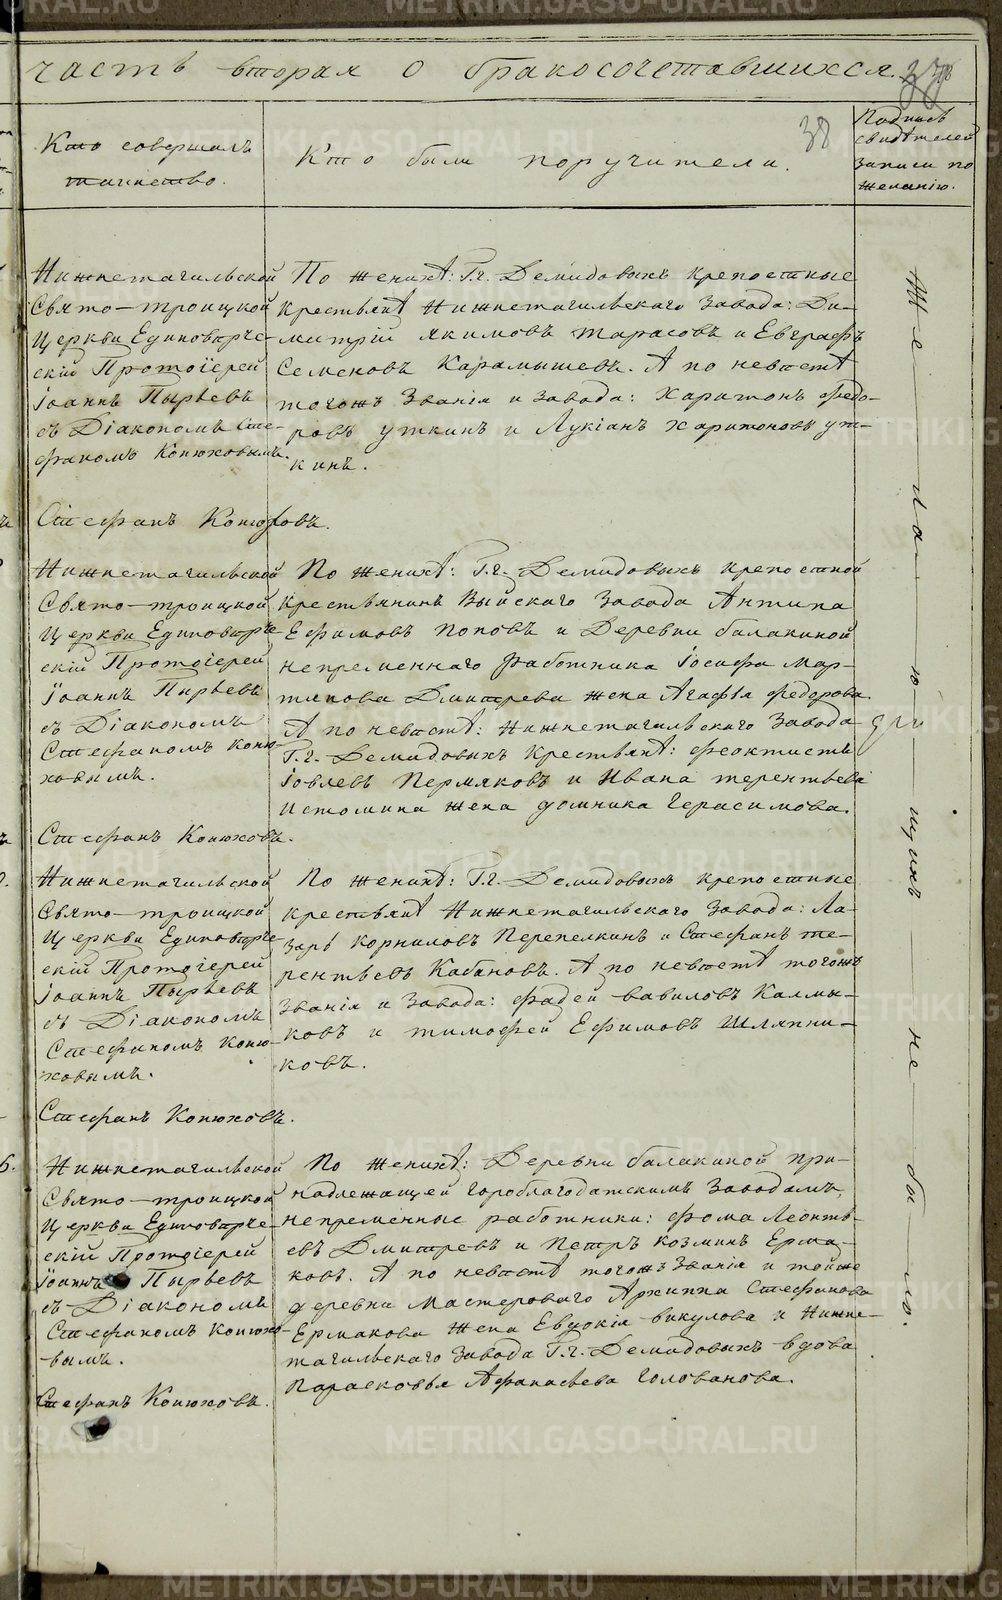 часть вторая о бракосочетавшихся.
38
Кто совершалъ
таинство.
Кто были поручители.
Подпись
свидѣтелей
записи по
желанію.
Нижнетагильской
Свято-троицкой
Церкви Единовѣрче-
скій Протоіерей
Іоаннъ Пырьевъ
съ Діакономъ Сте-
фаномъ Конюховымъ.
Стефанъ Конюховъ.
По женихѣ: Г.г. Демидовыхъ крепостные
крестьянѣ Нижнетагильскаго Завода: Ди-
митрій Якимовъ Тарасовъ и Евграфъ
Семеновъ Карамышевъ. А по невѣстѣ
тогожъ Званія и Завода: Харитонъ Федо-
ровъ Уткинъ и Лукіанъ Харитоновъ Ут-
кинъ.
Нижнетагильской
Свято-троицкой
Церкви Единовѣрче
скій Протоіерей
Іоаннъ Пырьевъ
съ Діакономъ
Стефаномъ Коню-
ховымъ.
Стефанъ Конюховъ.
По женихѣ: Г.г. Демидовыхъ крепостной
крестьянинъ Выйскаго Завода Антипа
Ефимовъ Поповъ и Деревни балакиной
непременнаго работника Іосифа Мар-
тынова Дмитрева жена Агафія Федорова.
А по невѣстѣ: Нижнетагильскаго Завода
Г.г. Демидовыхъ крестьянѣ: Феоктистъ
Іовлевъ Пермяковъ и Ивана терентьева
Истомина жена домника Герасимова.
Нижнетагильской
Свято-троицкой
Церкви Единовѣрче
скій Протоіерей
Іоаннъ Пырьевъ
съ Діакономъ
Стефаномъ Коню-
ховымъ.
Стефанъ Конюховъ.
По женихѣ: Г.г. Демидовыхъ крепостные
крестьянѣ Нижнетагильскаго Завода: Ла-
зарь корниловъ Перепелкинъ и Стефанъ те-
рентьевъ Кабановъ. А по невѣстѣ тогожъ
Званія и Завода: Фадей вавиловъ Калмы-
ковъ и тимофей Ефимовъ Шляпни-
ковъ.
Нижнетагильской
Свято-троицкой
Церкви Единовѣрче-
скій Протоіерей
Іоаннъ Пырьевъ
съ Діакономъ
Стефаномъ Конюхо-
вымъ.
Стефанъ Конюховъ.
По женихѣ: Деревни балакиной при-
надлежащей гороблагодатскимъ Заводамъ,
непременные работники: Фома Леонть-
евъ Дмитревъ и Петръ козминъ Ерма-
ковъ. А по невѣстѣ тогожъ Званія и тойже
деревни мастероваго Архиппа Стефанова
Ермакова жена Евдокія викулова и Нижне-
тагильскаго Завода Г.г. Демидовыхъ вдова
Парасковья Афанасьева Голованова.
Желающихъ не было.
METRIKI.GASO-URAL.RU